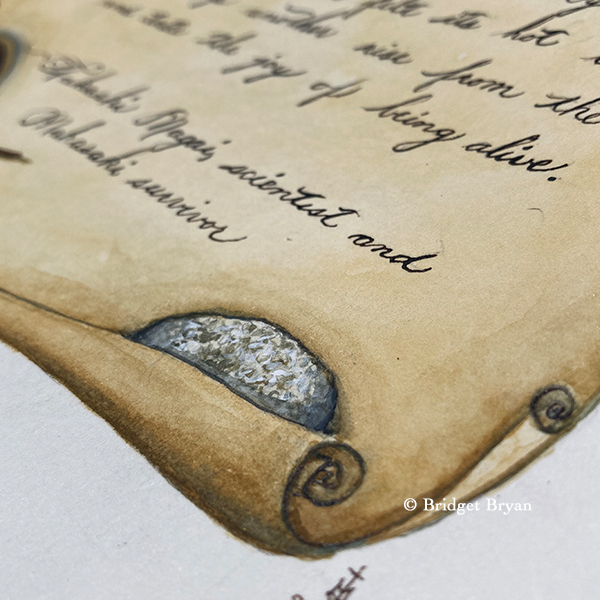 its hot
another rise from the
the joy of being alive.
Takashi Nagai, scientist and
Nakasaki survivor
© Bridget Bryan